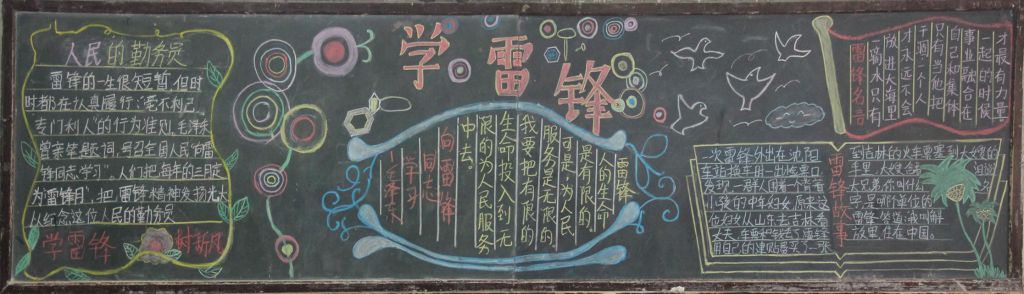 人民的勤务员
雷锋的一生很短暂,但时
时都在认真履行:“毫不利己,
专门利人”的行为准则,毛泽东
曾亲笔题词,号召全国人民“向雷
锋同志学习”。人们把每年的三月定
为“雷锋月”,把雷锋精神发扬光大
以纪念这位人民的勤务员
学雷锋 树新风
学雷锋
向雷锋
同志
学习
毛泽东
雷锋:
人的生命
是有限的,
可是,为人民
服务是无限的,
我要把有限的
生命投入到无
限的为人民服务
中去。
雷锋名言
一滴水只有
放进大海里
才永远不会
干涸,一个人
只有当他把
自己和集体
事业融合在
一起的时候
才最有力量
雷锋故事
一次雷锋外出在沈阳
车站换车
发现一群人围着一个背着
小孩的中年妇女,原来这
位妇女从山东去吉林看
丈夫,车票和钱丢了,雷锋
用自己的津贴费买了一张
到吉林的火车票塞到大嫂的
手里,大嫂
兄弟,你叫什么
字,是哪个单位的
雷锋笑道:我叫解
放军,住在中国。